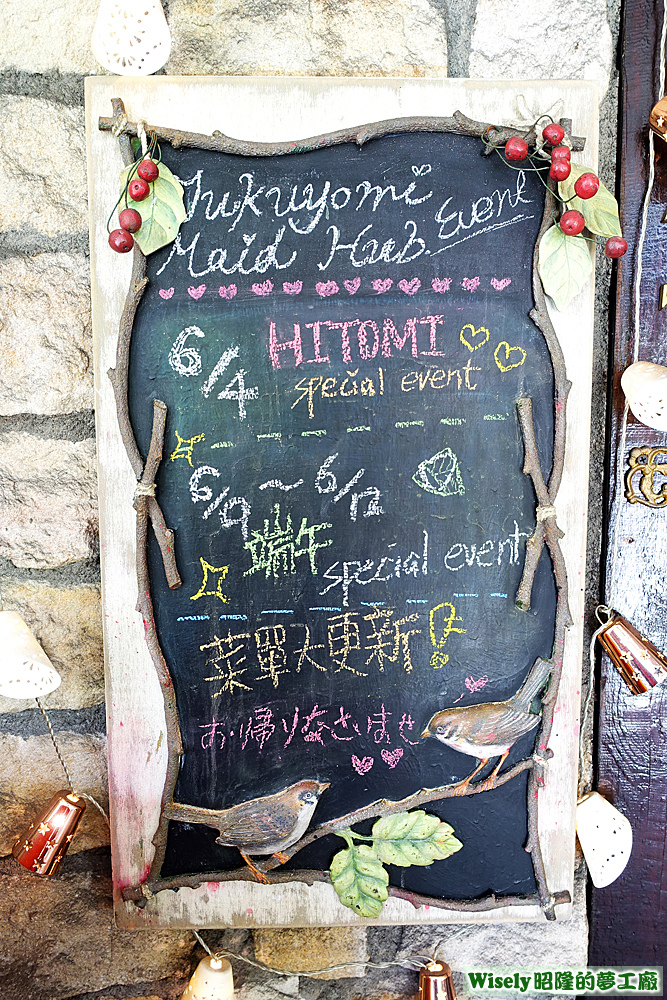 Tukuyomi
Maid Hub. Event
6/4 HITOMI
special event
6/9~6/12
端午
special event
菜單大更新!
お帰りなさいませ
Wisely昭隆的夢工廠